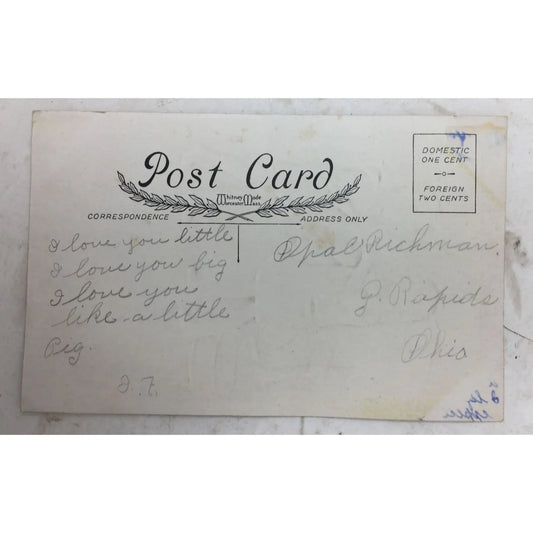 Post Card
Whitney Made
Worcester Mass
CORRESPONDENCE
ADDRESS ONLY
DOMESTIC
ONE CENT
FOREIGN
TWO CENTS
I love you little
I love you big
I love you
like a little
Pig.
J. F.
Opal Richman
G. Rapids
Ohio